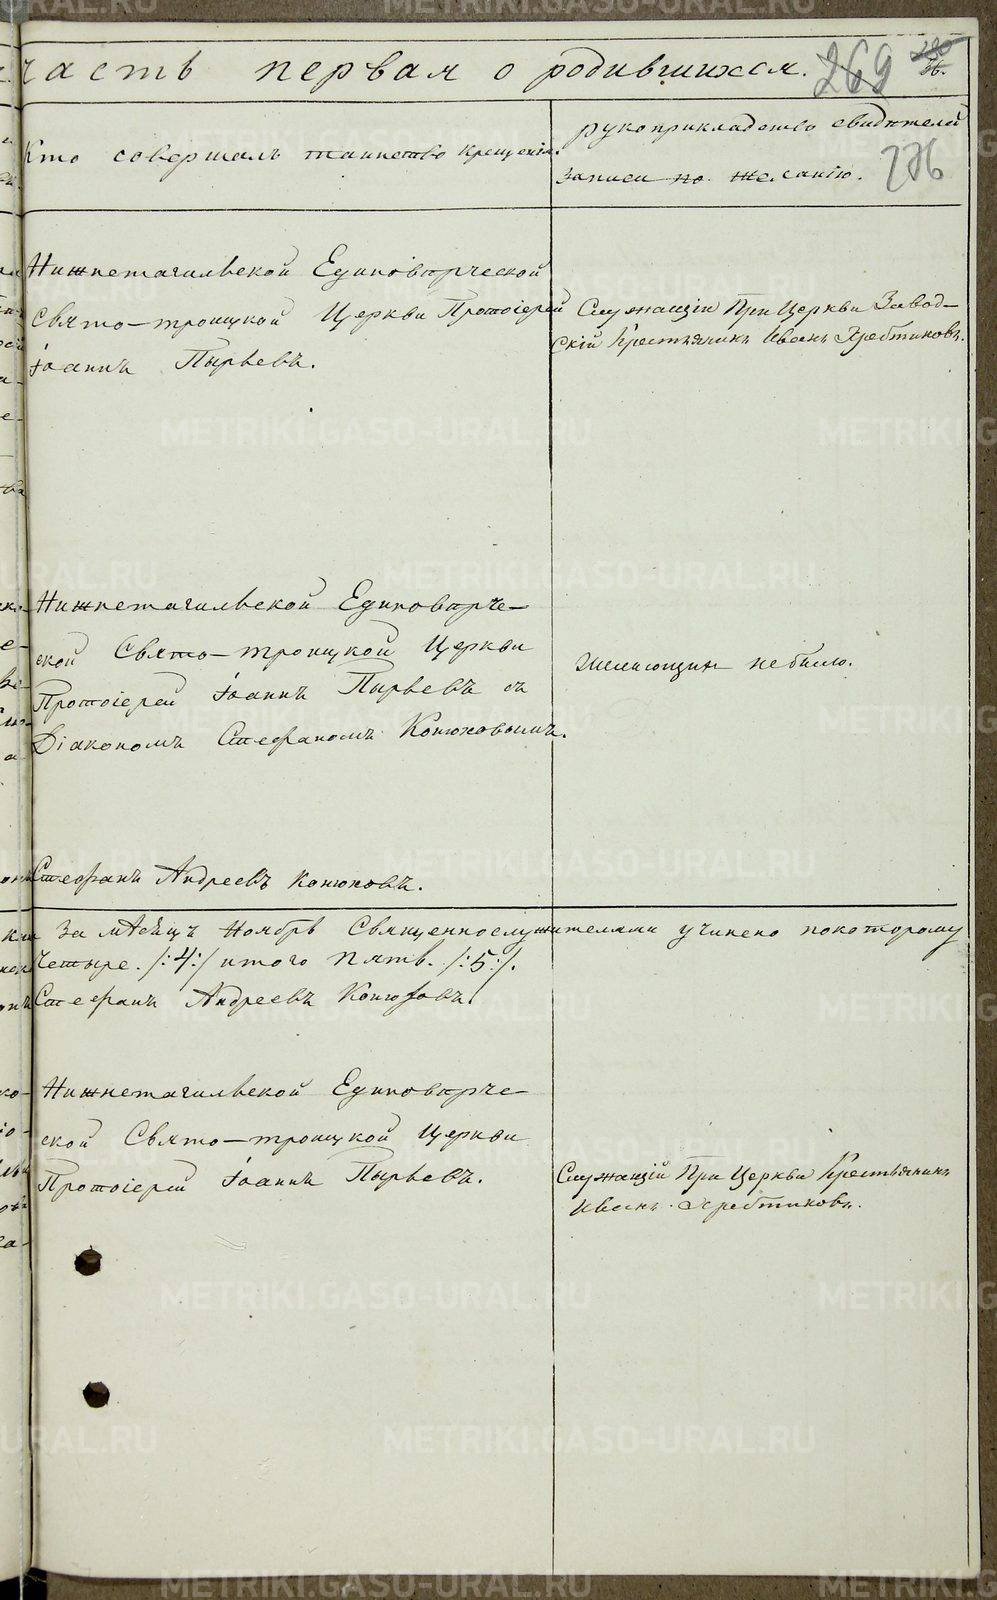 часть первая о родившихся. 269
Кто совершалъ таинство крещенія.
рукоприкладство свидѣтелей
записи по желанію. 276
Нижнетагильской Единовѣрческой
Свято-троицкой Церкви Протоіерей
Іоаннъ Пырьевъ.
Служащій При Церкви Завод-
скій Крестьянинъ Иванъ Хребтиковъ.
Нижнетагильской Единовѣрче-
ской Свято-троицкой Церкви
Протоіерей Іоаннъ Пырьевъ съ
Діакономъ Стефаномъ Конюховымъ.
Желающихъ небыло.
Стефанъ Андреевъ Конюховъ.
За мѣсяцъ Ноябрь Священнослужителями учинено покоторому
Четыре. /:4:/ итого пять. /:5:/.
Стефанъ Андреевъ Конюховъ.
Нижнетагильской Единовѣрче-
ской Свято-троицкой Церкви
Протоіерей Іоаннъ Пырьевъ.
Служащій При Церкви Крестьянинъ
Иванъ Хребтиковъ.
METRIKI.GASO-URAL.RU